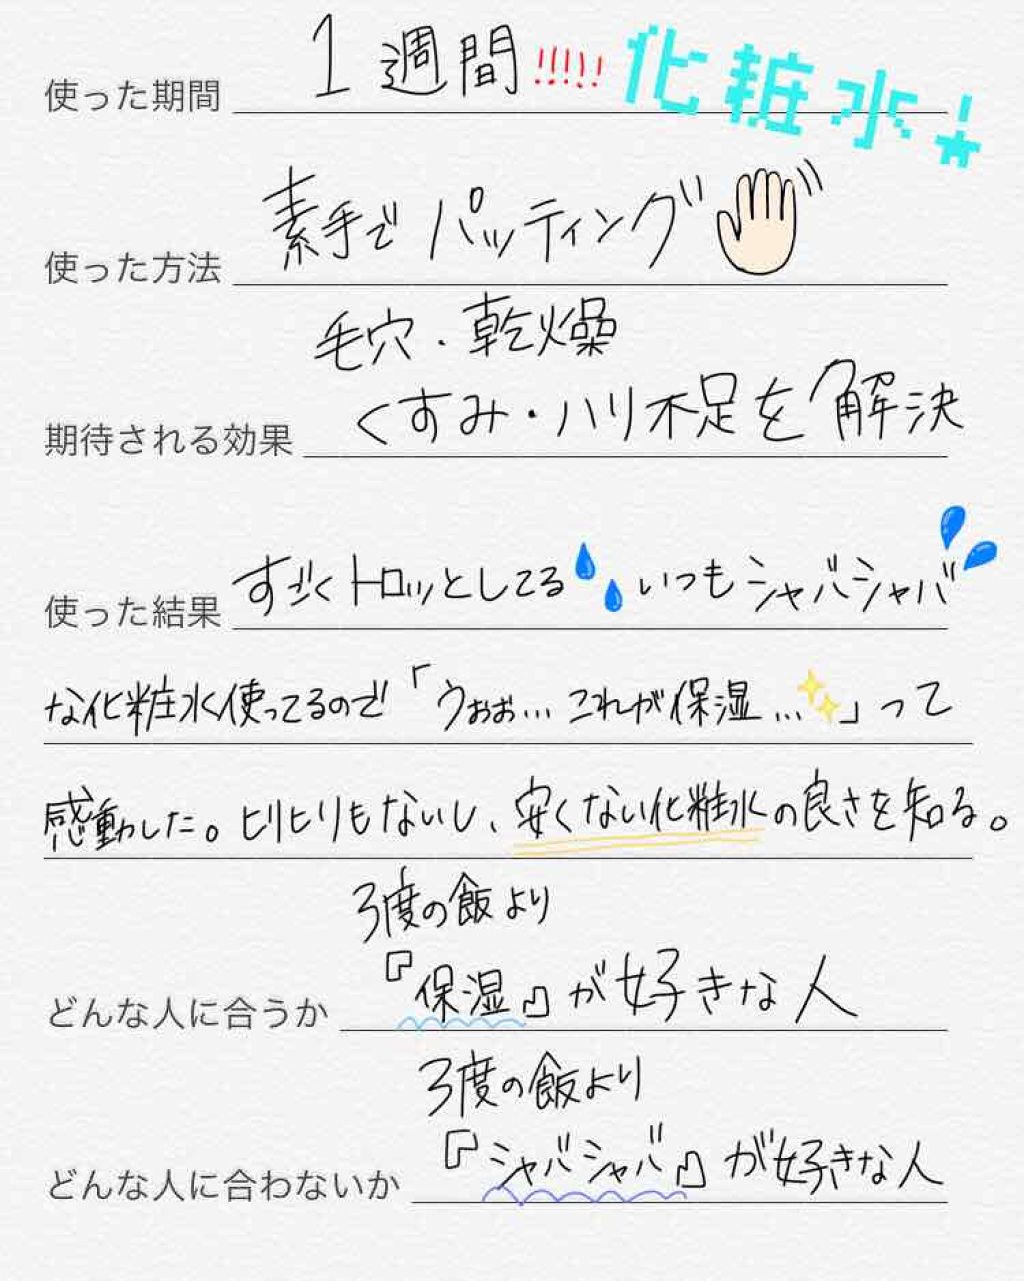 使った期間 1週間!!!!! 化粧水!
使った方法 素手でパッティング
毛穴・乾燥
期待される効果 くすみ・ハリ不足を解決
使った結果 すごくトロッとしてる いつもシャバシャバ
な化粧水使ってるので「うぉぉ…これが保湿…」って
感動した。ヒリヒリもないし、安くない化粧水の良さを知る。
3度の飯より
どんな人に合うか 『保湿』が好きな人
3度の飯より
どんな人に合わないか 『シャバシャバ』が好きな人